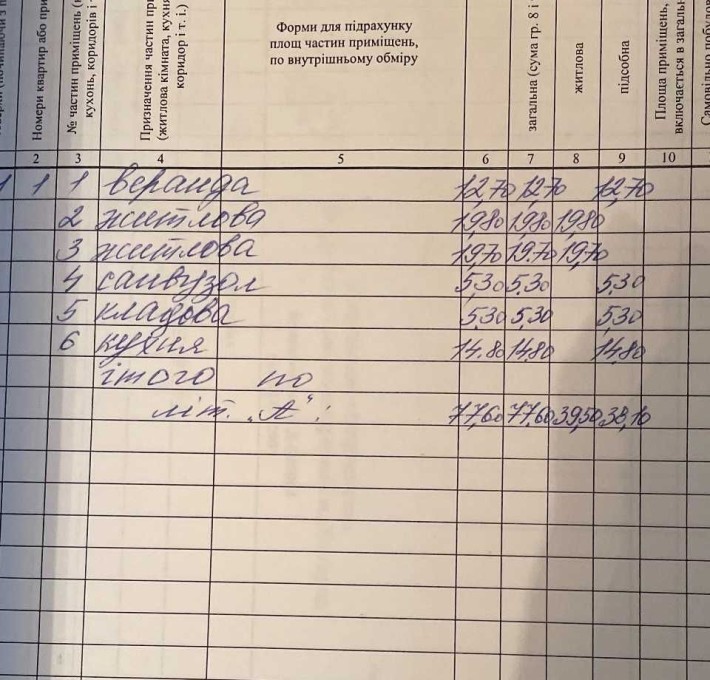 Номери квартир або при
№ частин приміщень (
кухонь, коридорів і
Призначення частин при
(житлова кімната, кухня
коридор і т. і.)
Форми для підрахунку
площ частин приміщень,
по внутрішньому обміру
загальна (сума гр. 8 і
житлова
підсобна
Площа приміщень,
включається в загаль
Самовільно побудов
2 3 4 5 6 7 8 9 10
1 1 1 веранда 12,70 12,70 12,70
2 житлова 19,80 19,80 19,80
3 житлова 19,70 19.70 19,70
4 санвузол 5,30 5,30 5,30
5 кладова 5,30 5,30 5,30
6 кухня 14.80 14,80 14,80
ітого по
літ. „А“: 77,60 77,60 39,50 38,10